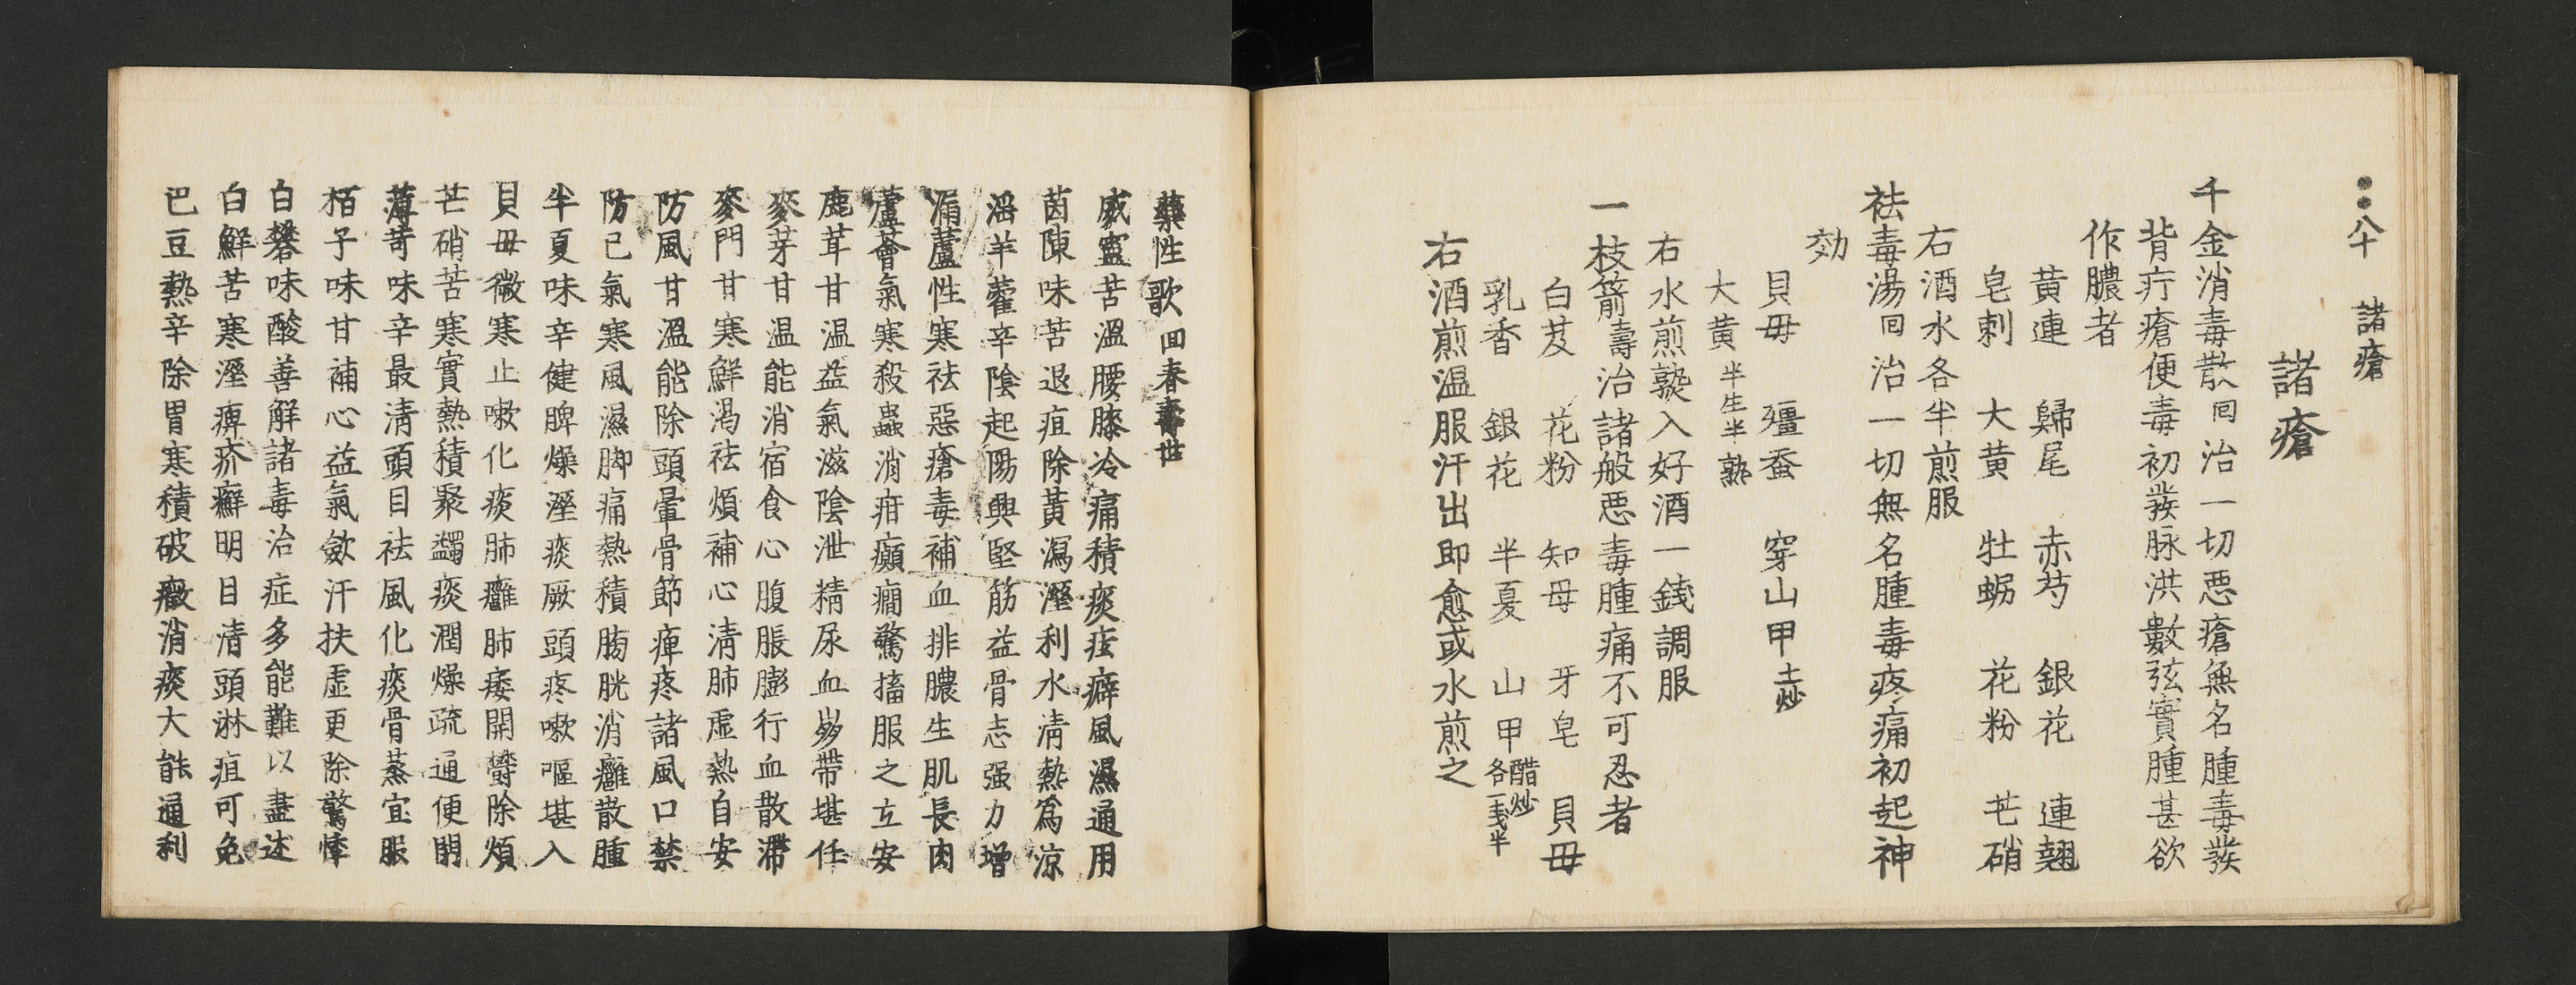 八十 諸瘡
諸瘡
千金消毒散 回 治一切惡瘡無名腫毒發
背疔瘡便毒初發脉洪數弦實腫甚欲
作膿者
黄連 歸尾 赤芍 銀花 連翹
皂刺 大黄 牡蛎 花粉 芒硝
右酒水各半煎服
祛毒湯 回 治一切無名腫毒疼痛初起神
効
貝毋 殭蚕 穿山甲 土炒
大黄 半生半熟
右水煎熟入好酒一錢調服
一枝箭 壽 治諸般惡毒腫痛不可忍者
白芨 花粉 知母 牙皂 貝毋
乳香 銀花 半夏 山甲 醋炒 各一戔半
右酒煎温服汗出即愈或水煎之
藥性歌 回春壽世
威靈苦溫腰膝冷痛積痰痃癖風濕通用
茵陳味苦退疸除黃瀉溼利水淸熱爲涼
淫羊藿辛陰起陽興堅筋益骨志强力增
漏蘆性寒祛惡瘡毒補血排膿生肌長肉
蘆薈氣寒殺蟲消疳癲癇驚搐服之立安
鹿茸甘温益氣滋陰泄精尿血崩帶堪任
麥芽甘温能消宿食心腹脹膨行血散滯
麥門甘寒解渴祛煩補心淸肺虛熱自安
防風甘溫能除頭暈骨節痺疼諸風口禁
防已氣寒風濕脚痛熱積膀胱消癰散腫
半夏味辛健脾燥溼痰厥頭疼嗽嘔堪入
貝毋微寒止嗽化痰肺癰肺痿開鬱除煩
芒硝苦寒實熱積聚蠲痰潤燥疏通便閉
薄苛味辛最淸頭目祛風化痰骨蒸宜服
栢子味甘補心益氣歛汗扶虛更除驚悸
白礬味酸善解諸毒治症多能難以盡述
白鮮苦寒溼痺疥癬明目清頭淋疸可免
巴豆熱辛除胃寒積破癥消痰大能通利